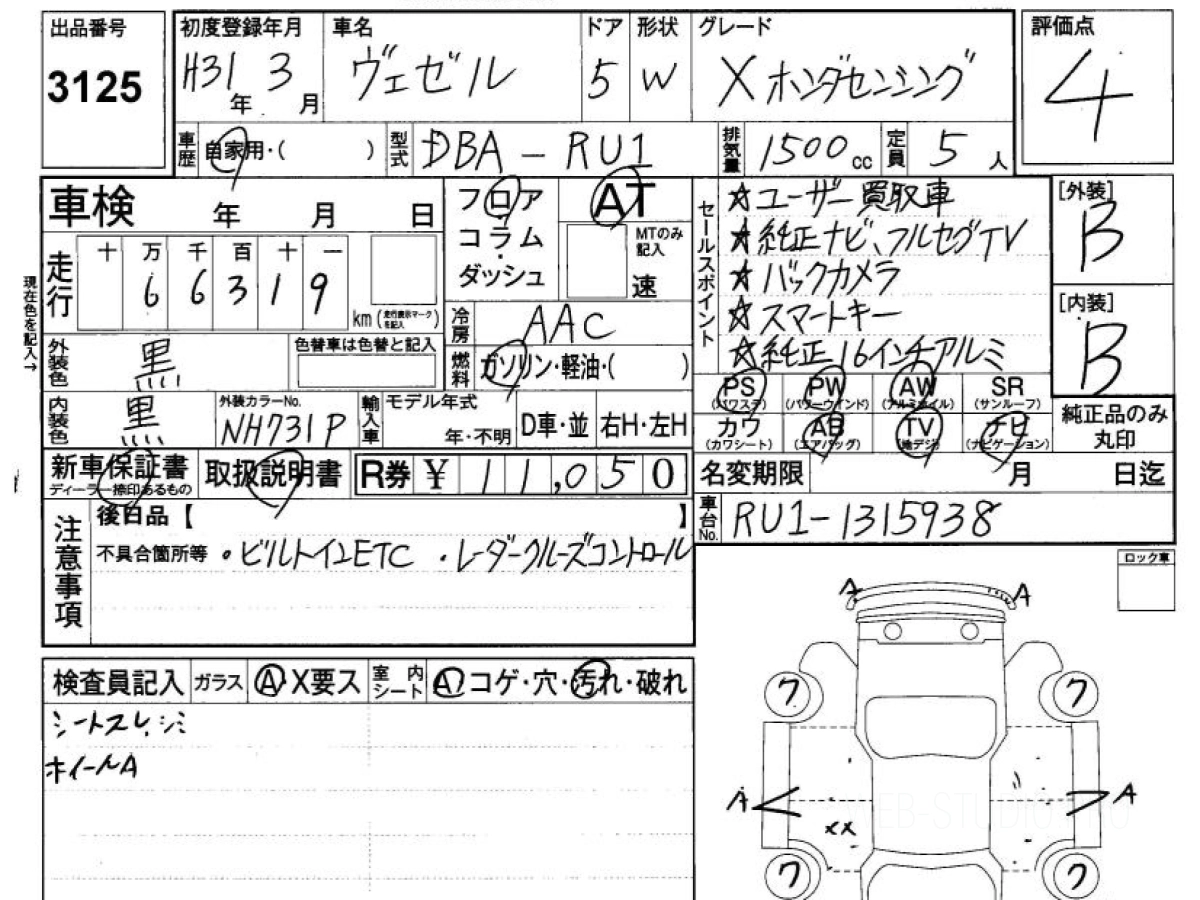 出品番号 初度登録年月 車名 ドア 形状 グレード 評価点
3125 H31年 3月 ヴェゼル 5 W X ホンダセンシング 4
車歴 自家用・( ) 型式 DBA-RU1 排気量 1500cc 定員 5人
車検 年 月 日 フロア AT セールスポイント ☆ユーザー買取車 [外装]
コラム MTのみ記入 ★純正ナビ、フルセグTV B
走行 十 万 千 百 十 一 ダッシュ 速 ☆バックカメラ
6 6 3 1 9 km (走行表示マークを記入) [内装]
現在色を記入→ 冷房 AAC ☆スマートキー B
外装色 黒 色替車は色替と記入 燃料 ガソリン・軽油・( ) ☆純正16インチアルミ
PS (パワステ) PW (パワーウインド) AW (アルミホイル) SR (サンルーフ)
内装色 黒 外装カラーNo. NH731P 輸入車 モデル年式 年・不明 D車・並 右H・左H
カワ (カワシート) AB (エアバッグ) TV (地デジ) ナビ (ナビゲーション) 純正品のみ丸印
新車保証書 ディーラー捺印あるもの 取扱説明書 R券 ¥ 11,050 名変期限 月 日迄
注意事項 後日品【 】 車台No. RU1-1315938
不具合箇所等 ・ビルトインETC ・レーダークルーズコントロール
ロック車
A A
検査員記入 ガラス A・X要ス 室内シート A・コゲ・穴・汚れ・破れ
シートスレ、シミ
ホイールA
ワ ワ
A A
XX
WEB-STUDIO PRO
ワ ワ